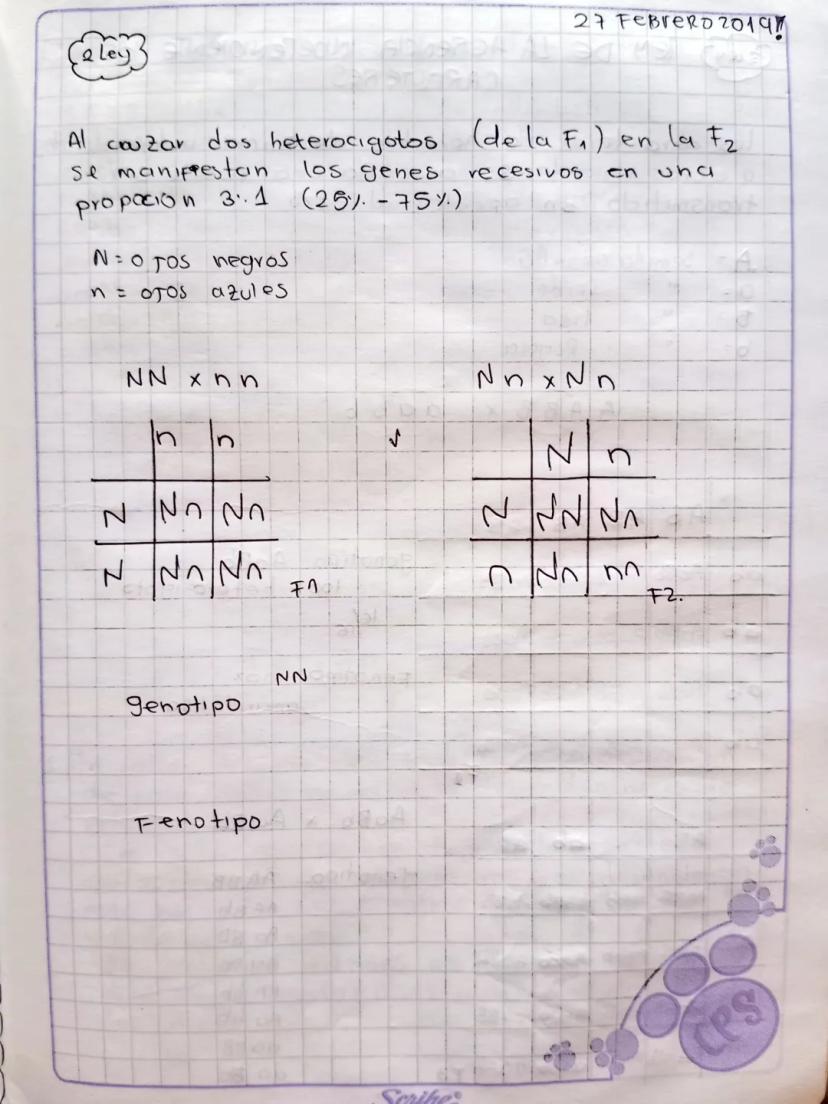 27 FEBRERO 2019!
2 Ley
Al cruzar dos heterocigotos (de la F1) en la F2
se manifiestan los genes recesivos en una
propocion 3:1 (25% - 75%)
N = OJOS negros
n = OJOS azules
NN x nn
Nn x Nn
n n
N Nn Nn
N Nn Nn
F1
N n
N NN Nn
n Nn nn
F2.
NN
genotipo
Fenotipo
CPS
Scribe